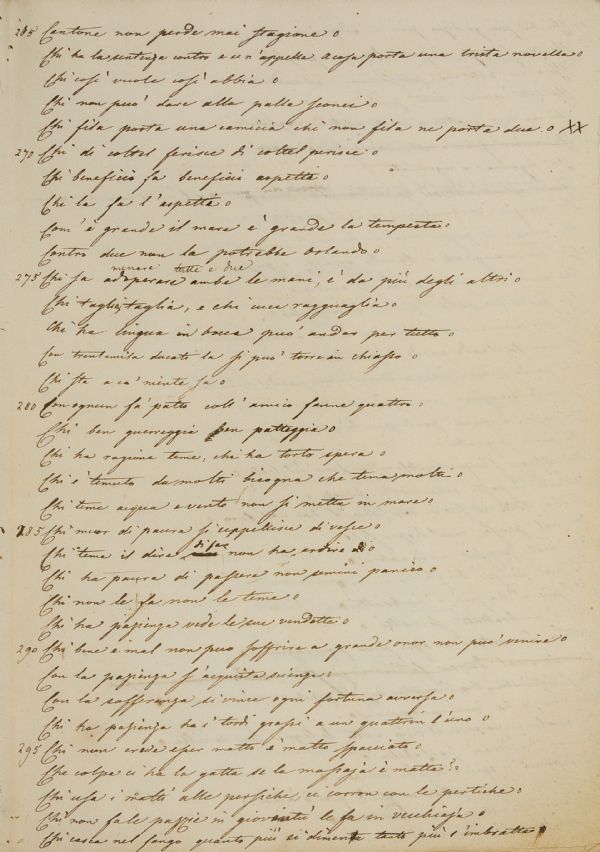 265 Cantone non perde mai stagione
Chi ha la sentenza contro e se n'appella a casa porta una trista novella
Chi così vuole così abbia
Chi non può dare alla palla sconci
Chi fila porta una camicia chi non fila ne porta due XX
270 Chi di coltel ferisce di coltel perisce
Chi beneficio fa beneficio aspetta
Chi la fa l'aspetta
Com' è grande il mare è grande la tempesta
Contro due non la potrebbe Orlando
menare tutte e due
275 Chi sa adoperare ambe le mani, è da più degli altri
Chi taglia, taglia, e chi cuce ragguaglia
Chi ha lingua in bocca può andar per tutto
Con trentamila ducati la si può torre in chiasso
Chi sta a co' niente fa
280 Con ognun fa' patto coll' amico fanne quattro
Chi ben guerreggia ben patteggia
Chi ha ragione teme, chi ha torto spera
Chi è temuto da molti bisogna che tema molti
Chi teme acqua e vento non si metta in mare
285 Chi muor di paura si seppellisce di vesce
Chi teme il dire di far non ha ardire
Chi ha paura di passere non semini panico
Chi non le fa non le teme
Chi ha pazienza vede le sue vendette
290 Chi bene e mal non può soffrire a grande onor non può venire
Con la pazienza s'acquista scienza
Con la sofferenza si vince ogni fortuna avversa
Chi ha pazienza ha i tordi grassi a un quattrin l'uno
295 Chi non crede esser matto è matto spacciato
Che colpa ci ha la gatta se la massaja è matta?
Chi usa i matti alle persiche, ci corron con le pertiche
Chi non fa le pazzie in gioventù le fa in vecchiaja
Chi casca nel fango quanto più si dimena tanto più s'imbratta